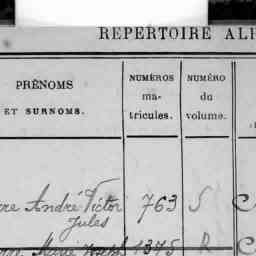 REPERTOIRE AL
PRÉNOMS
ET SURNOMS.
NUMÉROS
ma-
tricules.
NUMÉRO
du
volume.
rre André Victor 763 S
Jules
Marie Joseph 1375 R